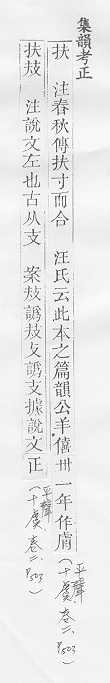 集韻考正
扶　注春秋傳扶寸而合　汪氏云此本之篇韻公羊僖卅一年作膚（平聲十虞、卷二、P503）
扶𢻳　注說文左也古从支　案𢻳譌𢻳攴譌支據說文正（平聲十虞、卷二、P503）